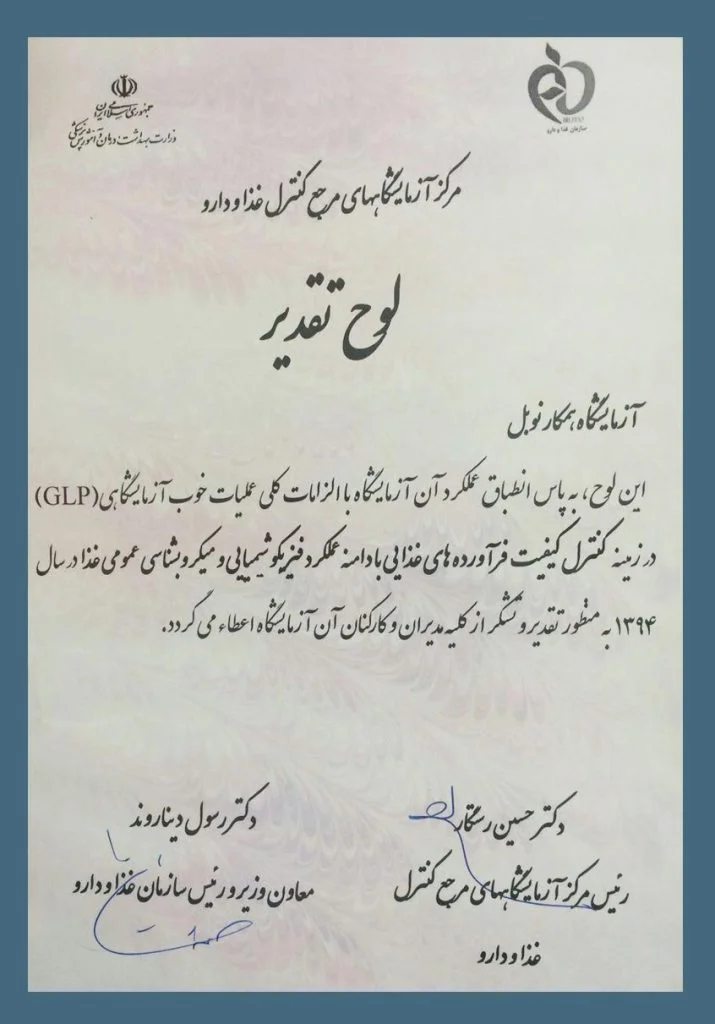 جمهوری اسلامی ایران
وزارت بهداشت درمان و آموزش پزشکی
سازمان غذا و دارو
مرکز آزمایشگاههای مرجع کنترل غذا و دارو
لوح تقدیر
آزمایشگاه همکار نوبل
این لوح، به پاس انطباق عملکرد آن آزمایشگاه با الزامات کلی عملیات خوب آزمایشگاهی (GLP)
در زمینه کنترل کیفیت فرآورده های غذایی با دامنه عملکرد فیزیکوشیمیایی و میکروبشناسی عمومی غذا در سال
۱۳۹۴ به منظور تقدیر و تشکر از کلیه مدیران و کارکنان آن آزمایشگاه اعطاء می گردد.
دکتر حسین رستگار
رئیس مرکز آزمایشگاههای مرجع کنترل
غذا و دارو
دکتر رسول دیناروند
معاون وزیر و رئیس سازمان غذا و دارو